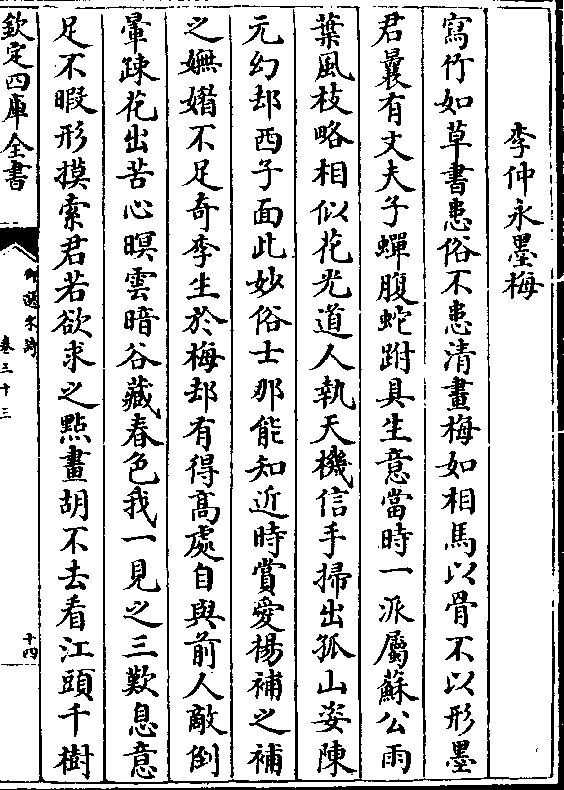 李仲永墨梅
寫竹如草書患俗不患清畫梅如相馬以骨不以形墨
君曩有丈夫子蟬腹蛇跗具生意當時一派屬蘇公雨
葉風枝略相似花光道人執天機信手掃出孤山姿陳
元幻却西子面此妙俗士那能知近時賞愛楊補之補
之嫵媚不足奇李生於梅却有得高處自與前人敵倒
暈踈花出苦心暝雲暗谷藏春色我一見之三歎息意
足不暇形摸索君若欲求之點畫胡不去看江頭千樹
欽定四庫全書
卷三十三
十四